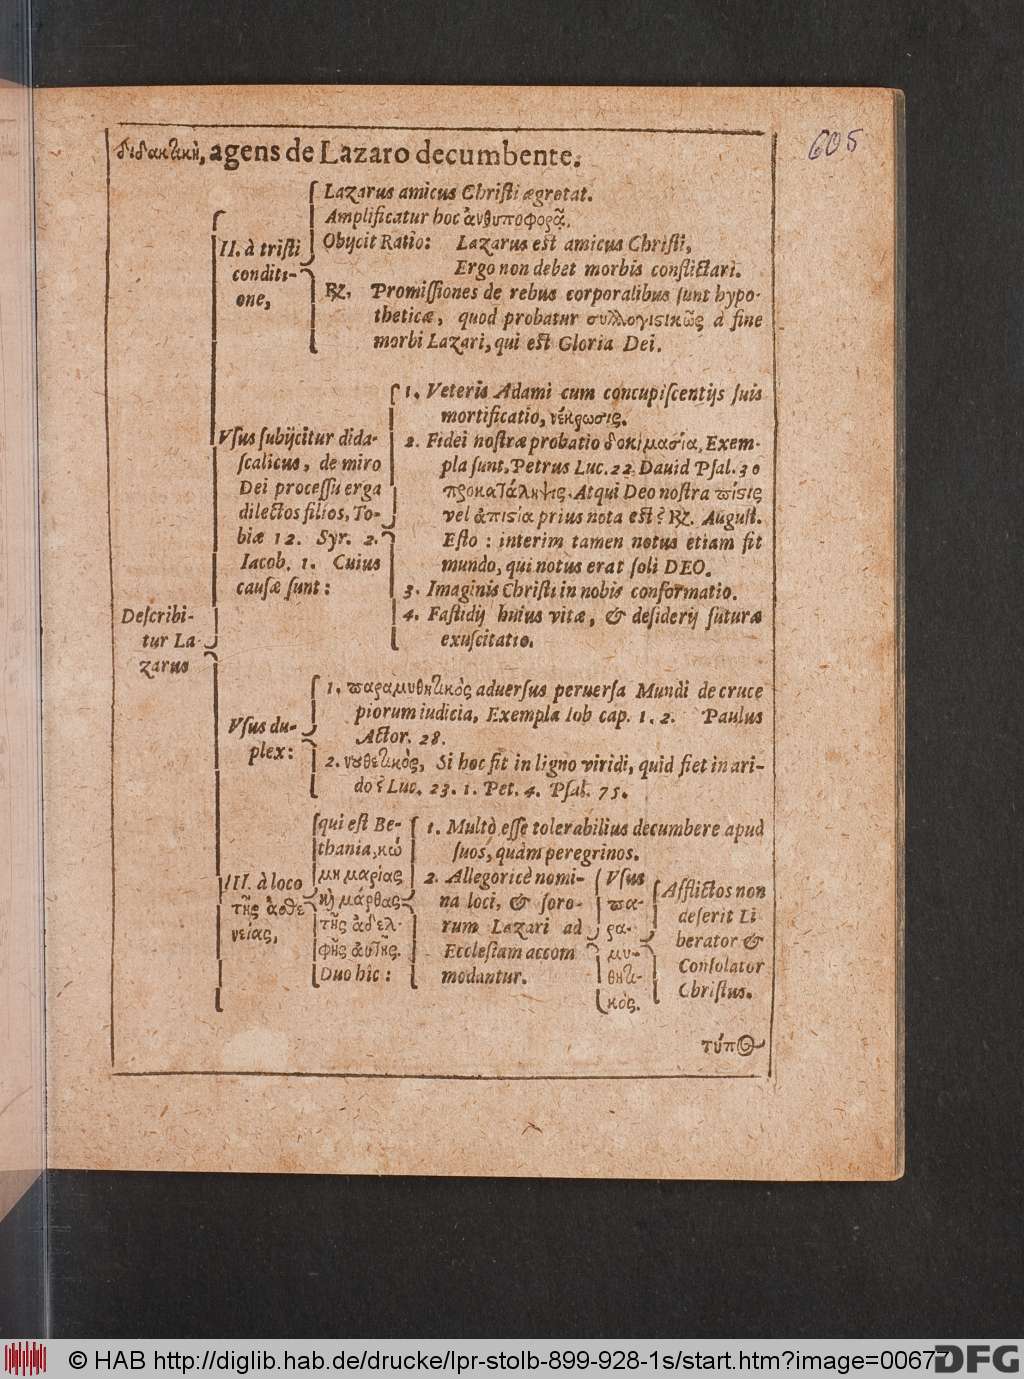 605
διδακτικὴ, agens de Lazaro decumbente.
Lazarus amicus Chriſti ægrotat.
Amplificatur hoc ἀνθυποφορᾷ.
II. à triſti
conditi-
one,
Obijcit Ratio: Lazarus est amicus Chriſti,
Ergo non debet morbis conflictari.
℞. Promiſſiones de rebus corporalibus ſunt hypo-
theticæ, quod probatur συλλογιστικῶς à fine
morbi Lazari, qui est Gloria Dei.
Vſus ſubijcitur dida-
ſcalicus, de miro
Dei proceſſu erga
dilectos filios, To-
biæ 12. Syr. 2.
Iacob. 1. Cuius
cauſæ ſunt:
1. Veteris Adami cum concupiſcentijs ſuis
mortificatio, νέκρωσις.
2. Fidei noſtræ probatio δοκιμασία, Exem-
pla ſunt, Petrus Luc. 22. Dauid Pſal. 30
προκατάληψις. Atqui Deo noſtra πίστις
vel ἀπιστία prius nota est? ℞. Auguſt.
Eſto: interim tamen notus etiam fit
mundo, qui notus erat ſoli DEO.
3. Imaginis Chriſti in nobis conformatio.
4. Faſtidij huius vitæ, & deſiderij futuræ
exuſcitatio.
Deſcribi-
tur La-
zarus
Vſus du-
plex:
1. παραμυθητικὸς aduerſus peruerſa Mundi de cruce
piorum iudicia, Exempla Iob cap. 1. 2. Paulus
Actor. 28.
2. νουθετικὸς, Si hoc fit in ligno viridi, quid fiet in ari-
do? Luc. 23. 1. Pet. 4. Pſal. 75.
III. à loco
τῆς ἀσθε
νείας,
qui eſt Be-
thania, κώ
μη μαρίας
καὶ μάρθας
τῆς ἀδελ-
φῆς αὐτῆς.
Duo hic:
1. Multò eſſe tolerabilius decumbere apud
ſuos, quàm peregrinos.
2. Allegoricè nomi-
na loci, & ſoro-
rum Lazari ad
Eccleſiam accom
modantur.
Vſus
πα-
ρα-
μυ-
θητι-
κὸς.
Afflictos non
deſerit Li
berator &
Conſolator
Chriſtus.
τύπος
© HAB http://diglib.hab.de/drucke/lpr-stolb-899-928-1s/start.htm?image=00677
DFG